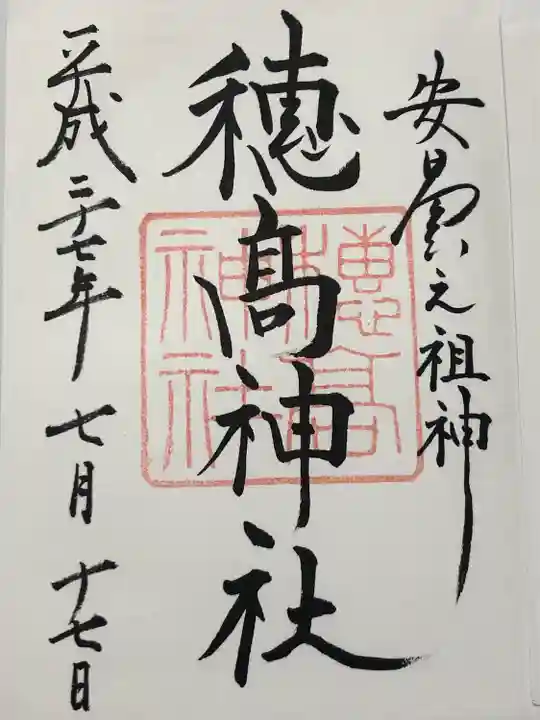 安曇之祖神
穂高神社
穂高神社
平成二十七年 七月 十七日